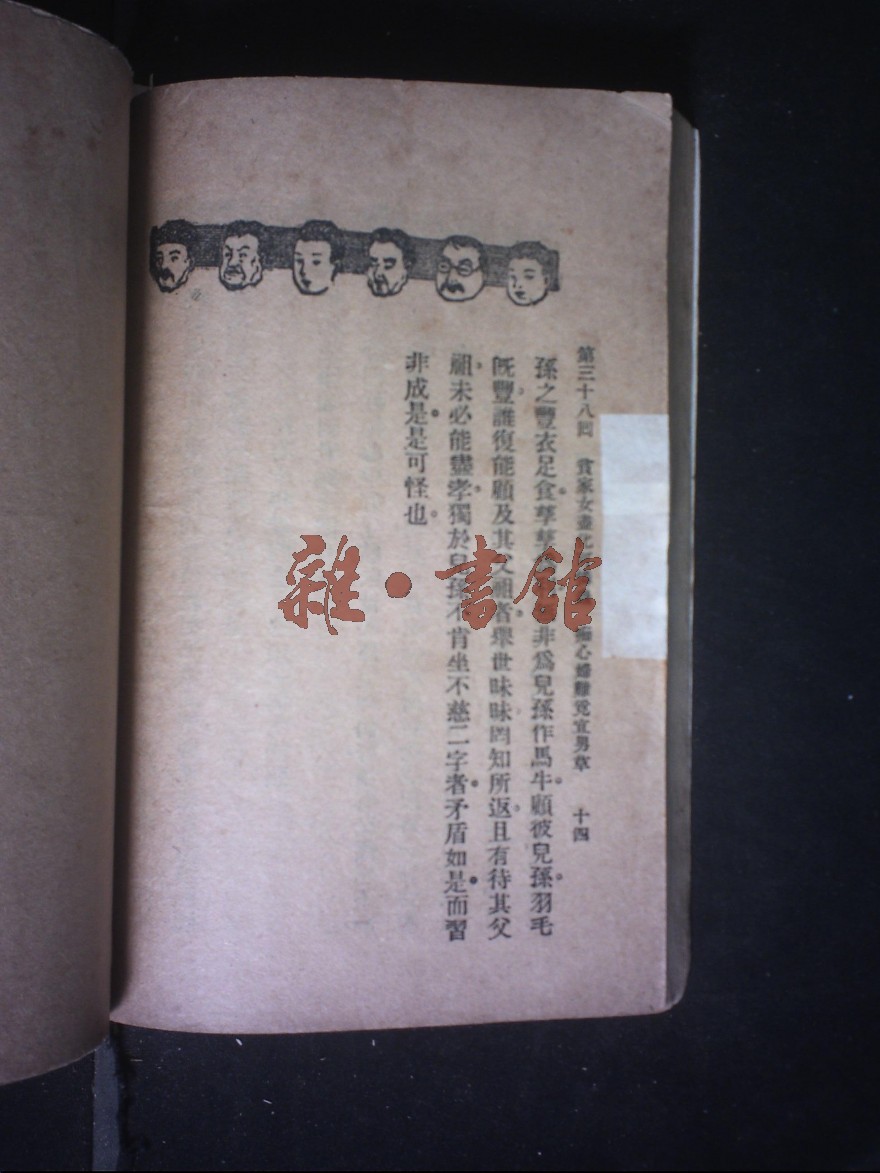 第三十八回 貧家女 心婦難覓宜男草 十四
孫之豐衣足食孳孳 非爲兒孫作馬牛。顧彼兒孫。羽毛
旣豐。誰復能顧及其父祖者。舉世昧昧。罔知所返。且有待其父
祖。未必能盡孝。獨於兒孫。不肯坐不慈二字者。矛盾如是。而習
非成是。是可怪也。
雜·書館